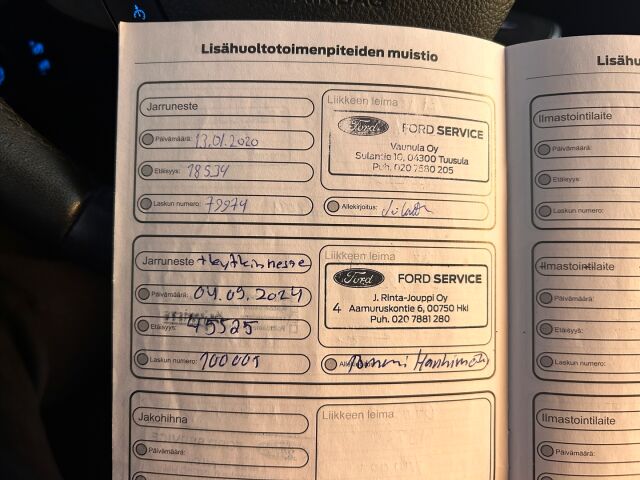 Lisähuoltotoimenpiteiden muistio
Jarruneste
Päivämäärä: 13.01.2020
Etäisyys: 18534
Laskun numero: 79974
Liikkeen leima
Ford FORD SERVICE
Vaunula Oy
Sulantie 10, 04300 Tuusula
Puh. 020 7580 205
Allekirjoitus:
Jarruneste + kytkinneste
Päivämäärä: 04.09.2024
Etäisyys: 45525
Laskun numero: 700001
Liikkeen leima
Ford FORD SERVICE
J. Rinta-Jouppi Oy
4 Aamuruskontie 6, 00750 Hki
Puh. 020 7881 280
Tommi
Jakohihna
Päivämäärä:
Liikkeen leima
Lisähu
Ilmastointilaite
Päivämäärä:
Etäisyys:
Laskun numero:
Ilmastointilaite
Päivämäärä:
Etäisyys:
Laskun numero:
Ilmastointilaite
Päivämäärä: